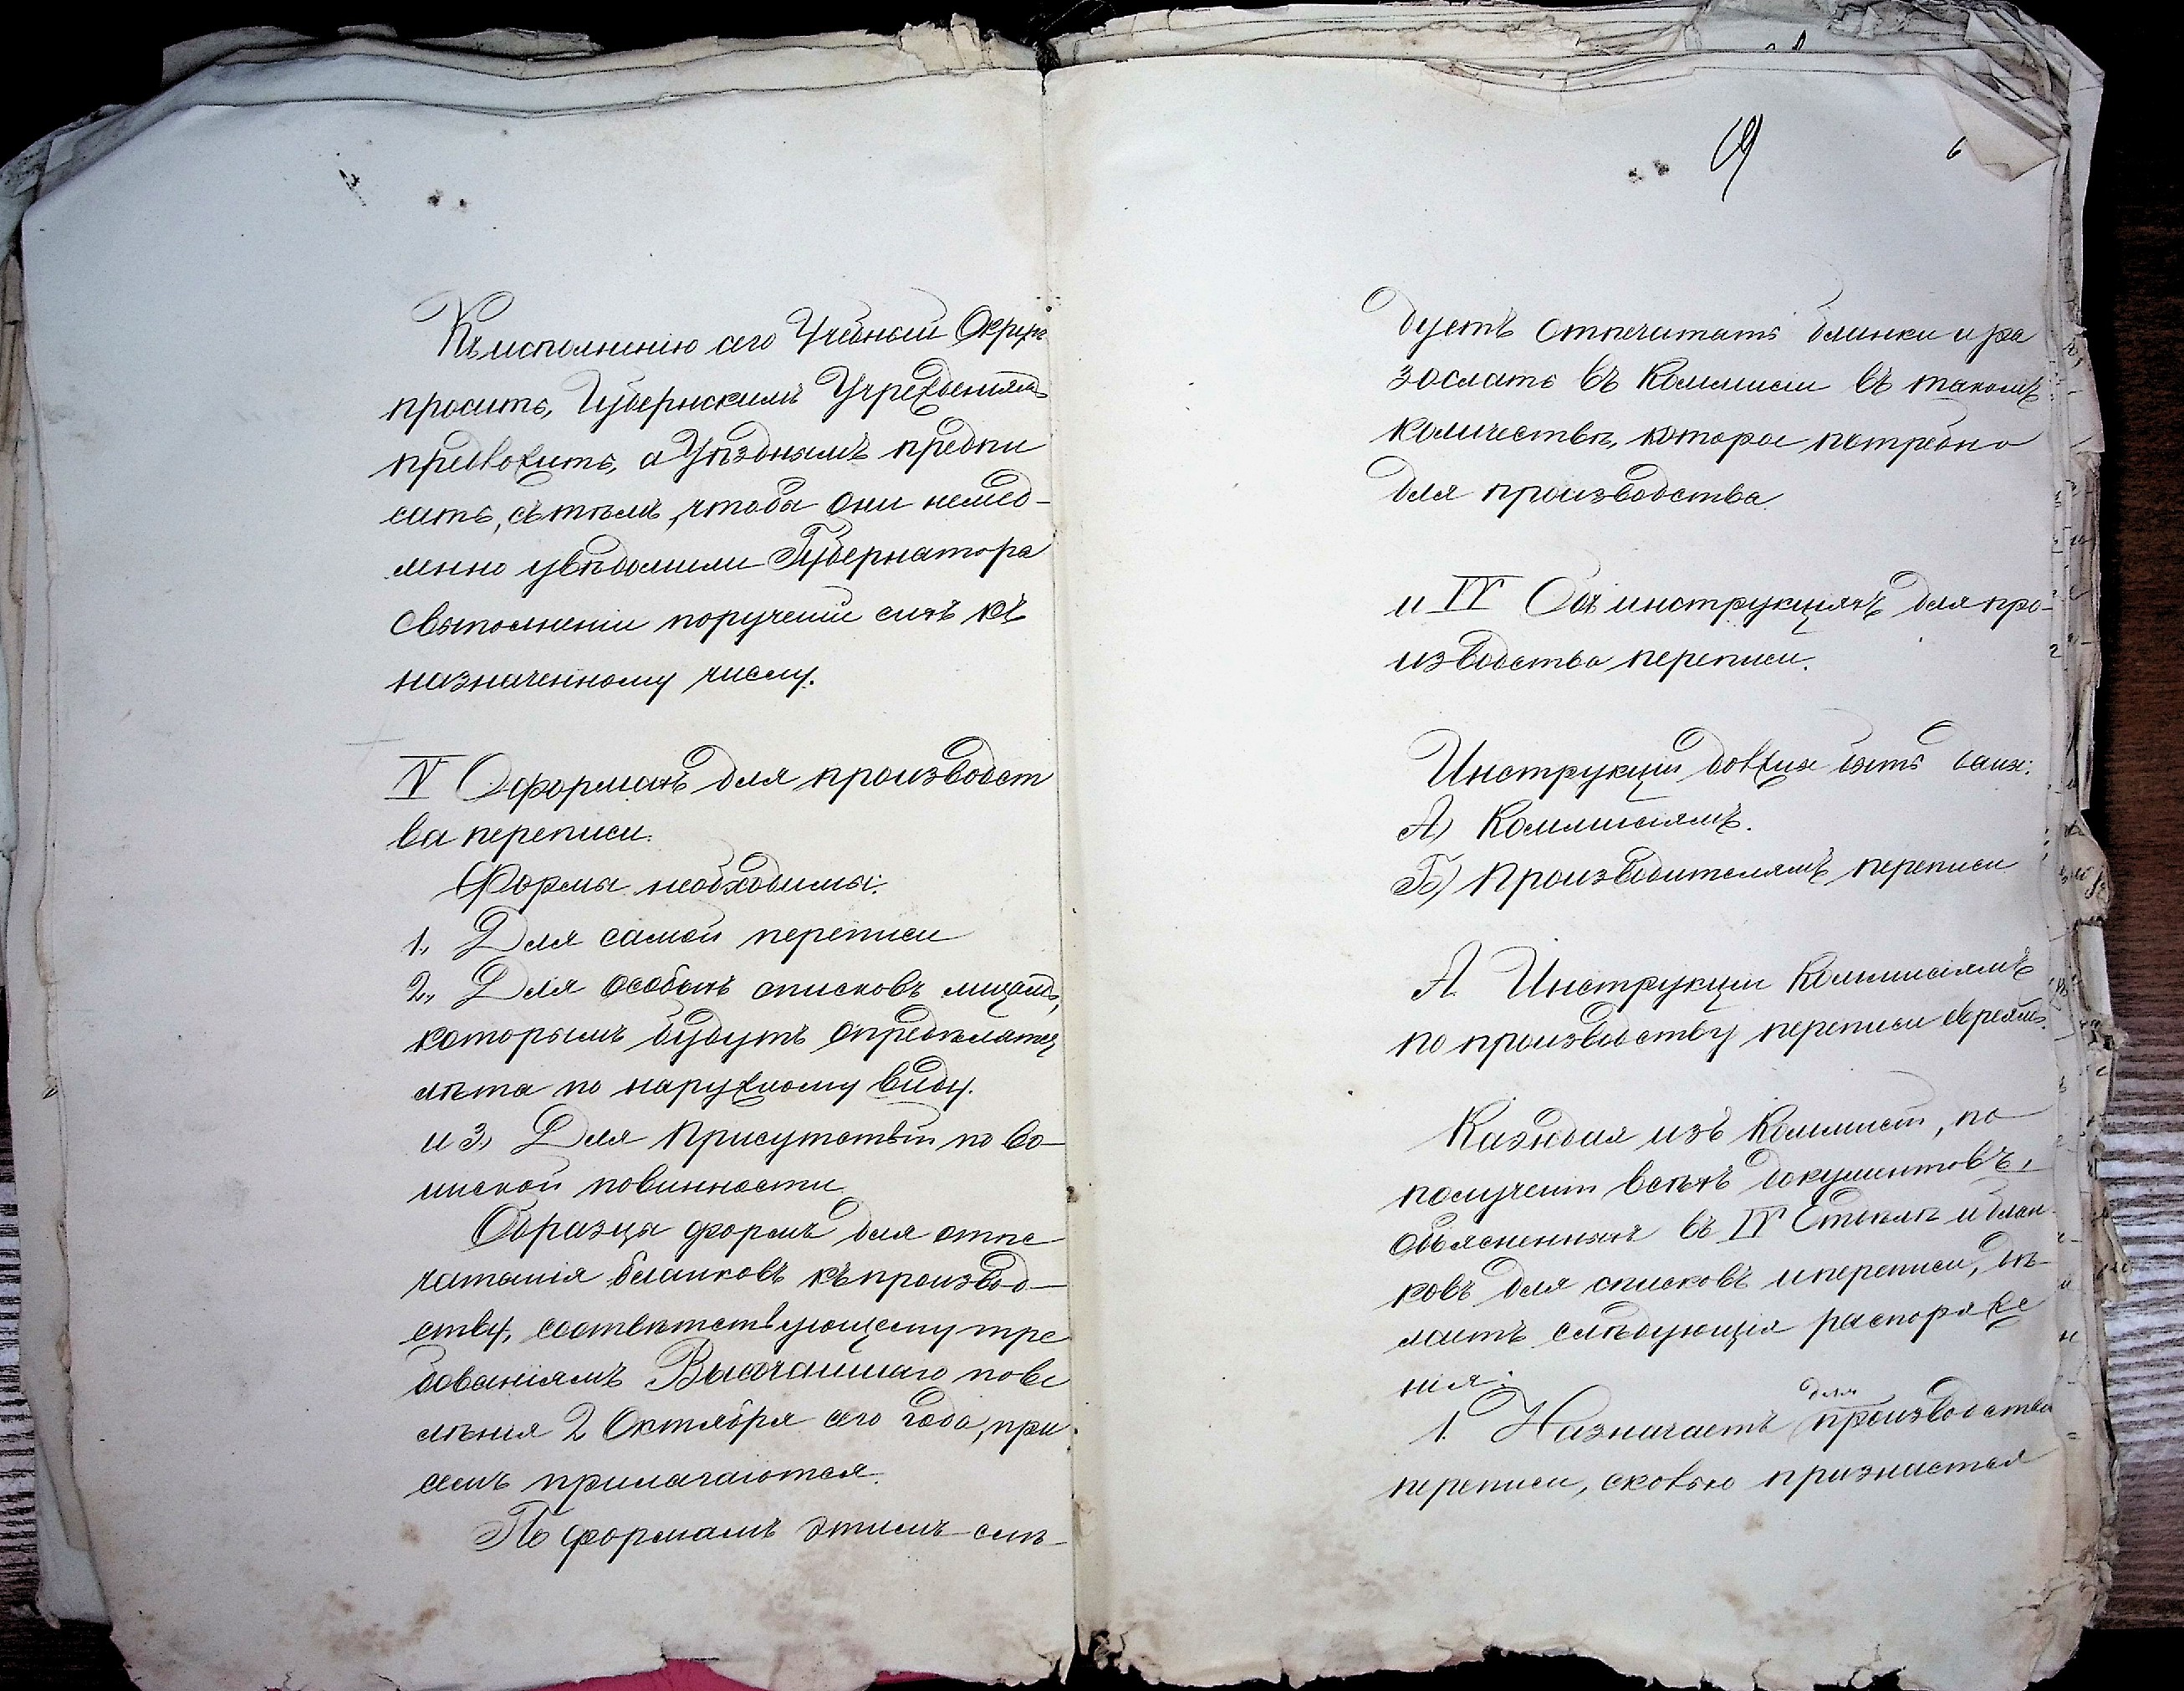 Къ исполненію сего Учебный Округъ
просить, Губернскимъ Учрежденіямъ
предложить, а Уѣзднымъ предпи
сать, съ тѣмъ, чтобы они немед-
ленно увѣдомили Губернатора
о выполненіи порученій сихъ къ
назначенному числу.
IV О формахъ для производст
ва переписи.
Формы необходимы:
1., Для самой переписи
2., Для особыхъ списковъ лицамъ,
которымъ будутъ опредѣлятся
лѣта по наружному виду.
и 3, Для Присутствій по во-
инской повинности
Образцы формъ для отпе
чатанія бланковъ къ производ-
ству, соотвѣтствующему тре
бованіямъ Высочайшаго пове
лѣнія 2 Октября сего года, при
семъ прилагаются.
По формамъ этимъ слѣ-
6
дуетъ отпечатать бланки и ра
зослать въ Коммисіи въ такомъ
количествѣ, которое потребно
для производства.
и IV Объ инструкціяхъ для про-
изводства переписи.
Инструкціи должны быть даны:
А) Коммисіямъ.
Б) Производителямъ переписи
А. Инструкціи Коммисіямъ
по производству переписи евреямъ.
Каждая изъ Коммисій, по
полученіи всѣхъ документовъ,
объясненныхъ въ IV Отдѣлѣ и блан
ковъ для списковъ и переписи, дѣ-
лаетъ слѣдующія распоряже
нія:
для
1. Назначаетъ производства
переписи, сколько признается